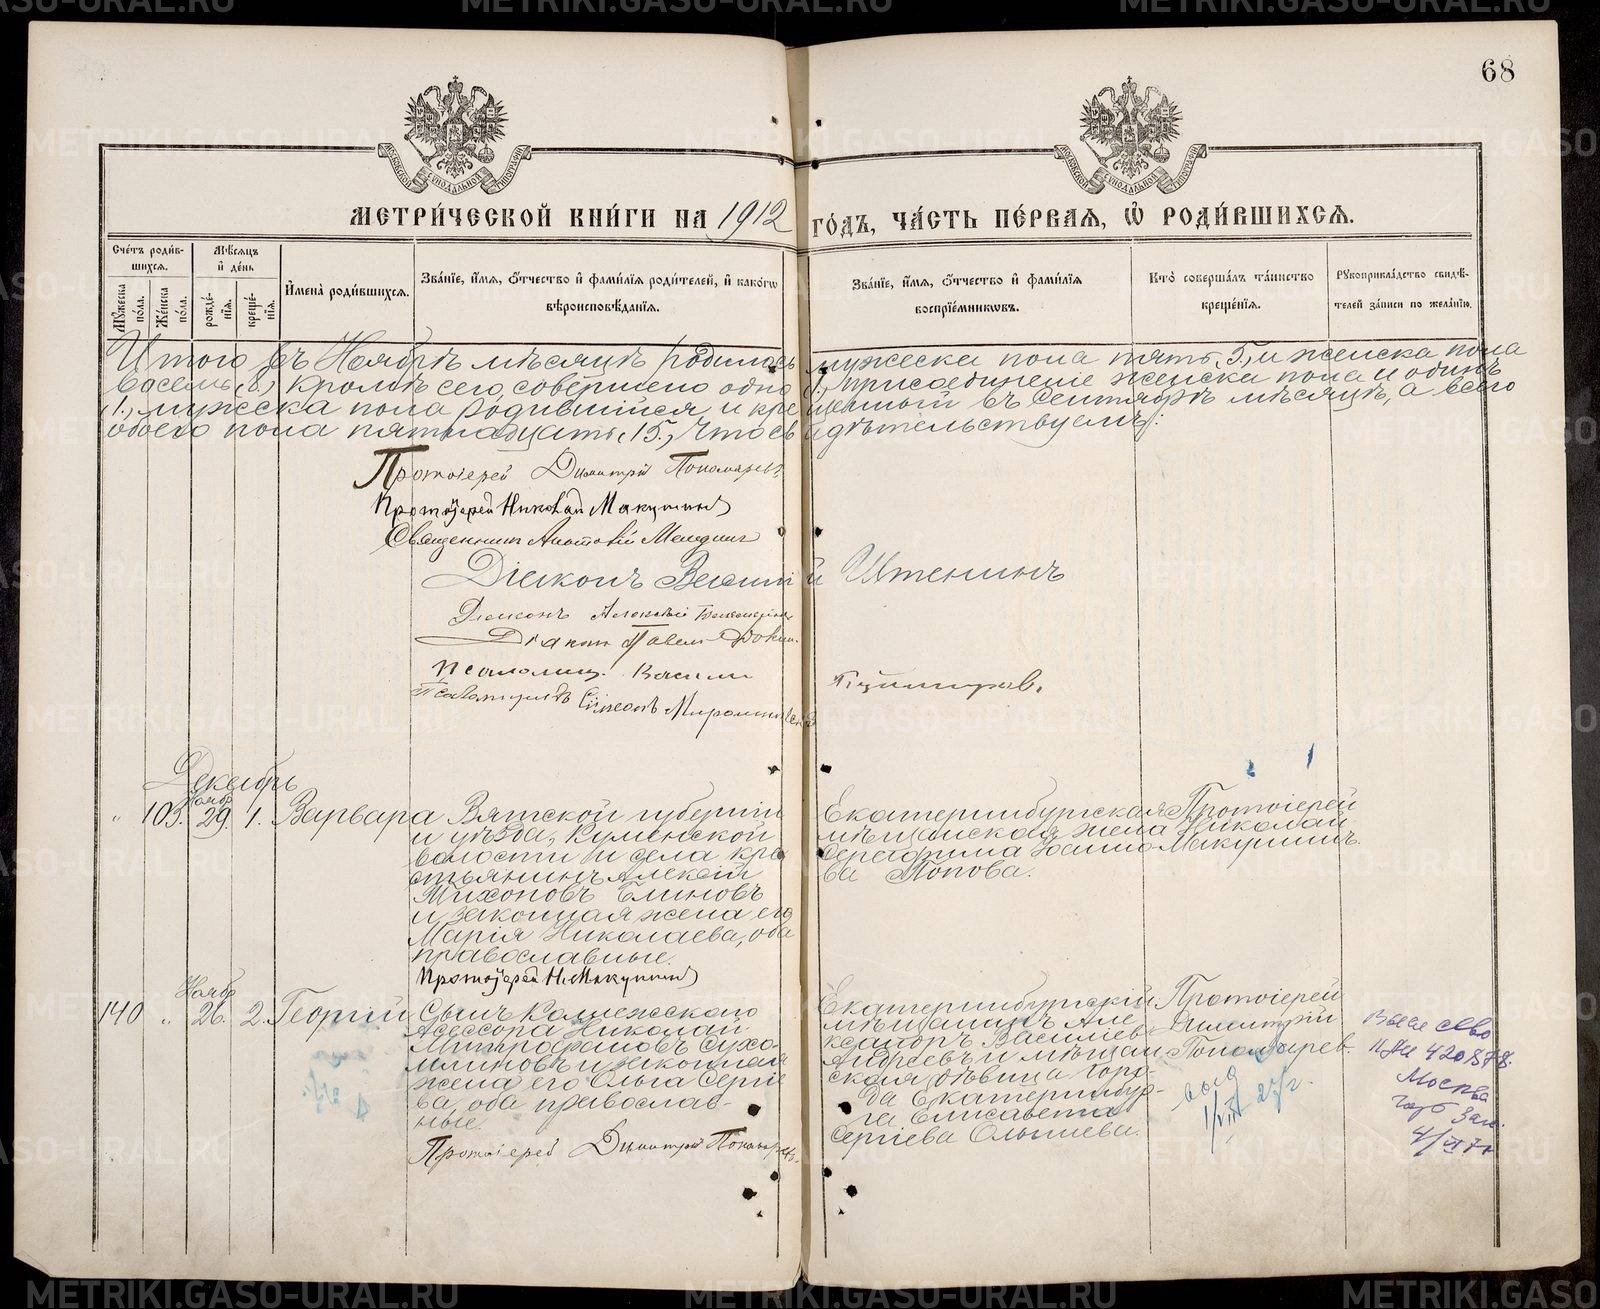 68
МЕТРИ́ЧЕСКОЙ КНИ́ГИ НА 1912 ГО́ДЪ, ЧА́СТЬ ПЕ́РВАЯ, Ѡ РОДИ́ВШИХСЯ.
Сче́тъ роди́в-
шихся.
Мꙋжеска по́ла.
Же́нска по́ла.
Мѣ́сяцъ и де́нь
рожде́-
нїя.
креще́-
нїя.
Имена̀ роди́вшихся.
Зва́нїе, и́мя, о́тчество и фами́лїя роди́телей, и како́гѡ
вѣроисповѣ́данїя.
Зва́нїе, и́мя, о́тчество и фами́лїя
воспрїе́мникѡвъ.
Кто̀ соверша́лъ та́инство
креще́нїя.
Рꙋкоприкла́дство свидѣ́-
телей за́писи по жела́нїю.
Итого въ Ноябрѣ мѣсяцѣ родилось мужеска пола пять, 5, и женска пола
восемь, 8, кромѣ сего, совершено одно, 1, присоединеніе женска пола и одинъ
, 1, мужеска пола родившійся и крещенный въ Сентябрѣ мѣсяцѣ, а всего
обоего пола пятнадцать, 15, что свидѣтельствуемъ:
Протоіерей Димитрій Пономаревъ
Протоіерей Николай Макушинъ
Священникъ Анатолій
Діаконъ Василій Иштенинъ
Діаконъ Алексѣй
Діаконъ Павелъ
Псаломщ. Василій
Псаломщикъ Сімеонъ
Декабрь
" 103. Ноябр. 29. 1. Варвара
Вятской губерніи
и уѣзда, Куменской
волости и села кре
стьянинъ Алексій
Тихоновъ Блиновъ
и законная жена его
Марія Николаева, оба
православные.
Протоіерей Н. Макушинъ
Екатеринбургская
мѣщанская жена
Серафима Іоанно
ва Попова.
Протоіерей
Николай
Макушинъ.
140 " Ноябр. 26. 2. Георгій
Сынъ Коллежскаго
Асессора Николай
Митрофановъ Сухо-
млиновъ и законная
жена его Ольга Сергіе
ва, оба православ-
ные.
Протоіерей Димитрій Пономаревъ.
Екатеринбургскій
мѣщанинъ Але
ксандръ Василіевъ
Андреевъ и мѣщан
ская дѣвица горо-
да Екатеринбур-
га Елисавета
Сергіева
Протоіерей
Димитрій
Пономарев.
Москва
METRIKI.GASO-URAL.RU